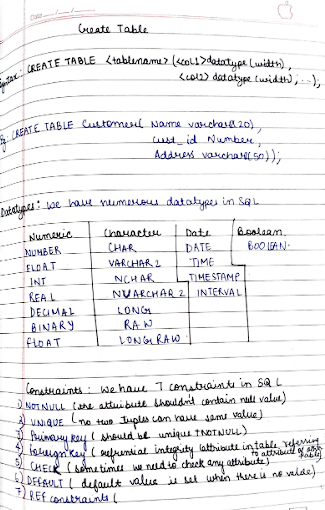 Create Table
Syntax: CREATE TABLE <tablename> (<col1>datatype (width),
<col2> datatype (width), ...);
Eg: CREATE TABLE Customer( Name varchar(20),
Cust_id Number,
Address varchar(50));
Datatypes: We have numerous datatypes in SQL
Numeric Character Date Boolean
NUMBER CHAR DATE BOOLEAN.
FLOAT VARCHAR2 TIME
INT NCHAR TIMESTAMP
REAL NVARCHAR 2 INTERVAL
DECIMAL LONG
BINARY RAW
FLOAT LONG RAW
Constraints: We have 7 constraints in SQL
1) NOTNULL (one attribute shouldn't contain null value)
2) UNIQUE (no two tuples can have same value)
3) Primary key ( should be unique + NOTNULL)
4) Foreign key ( referential integrity (attribute in table, referring
to attribute of table)
5) CHECK (sometimes we need to check any attribute)
6) DEFAULT ( default value is set when there is no value)
7) REF constraints (